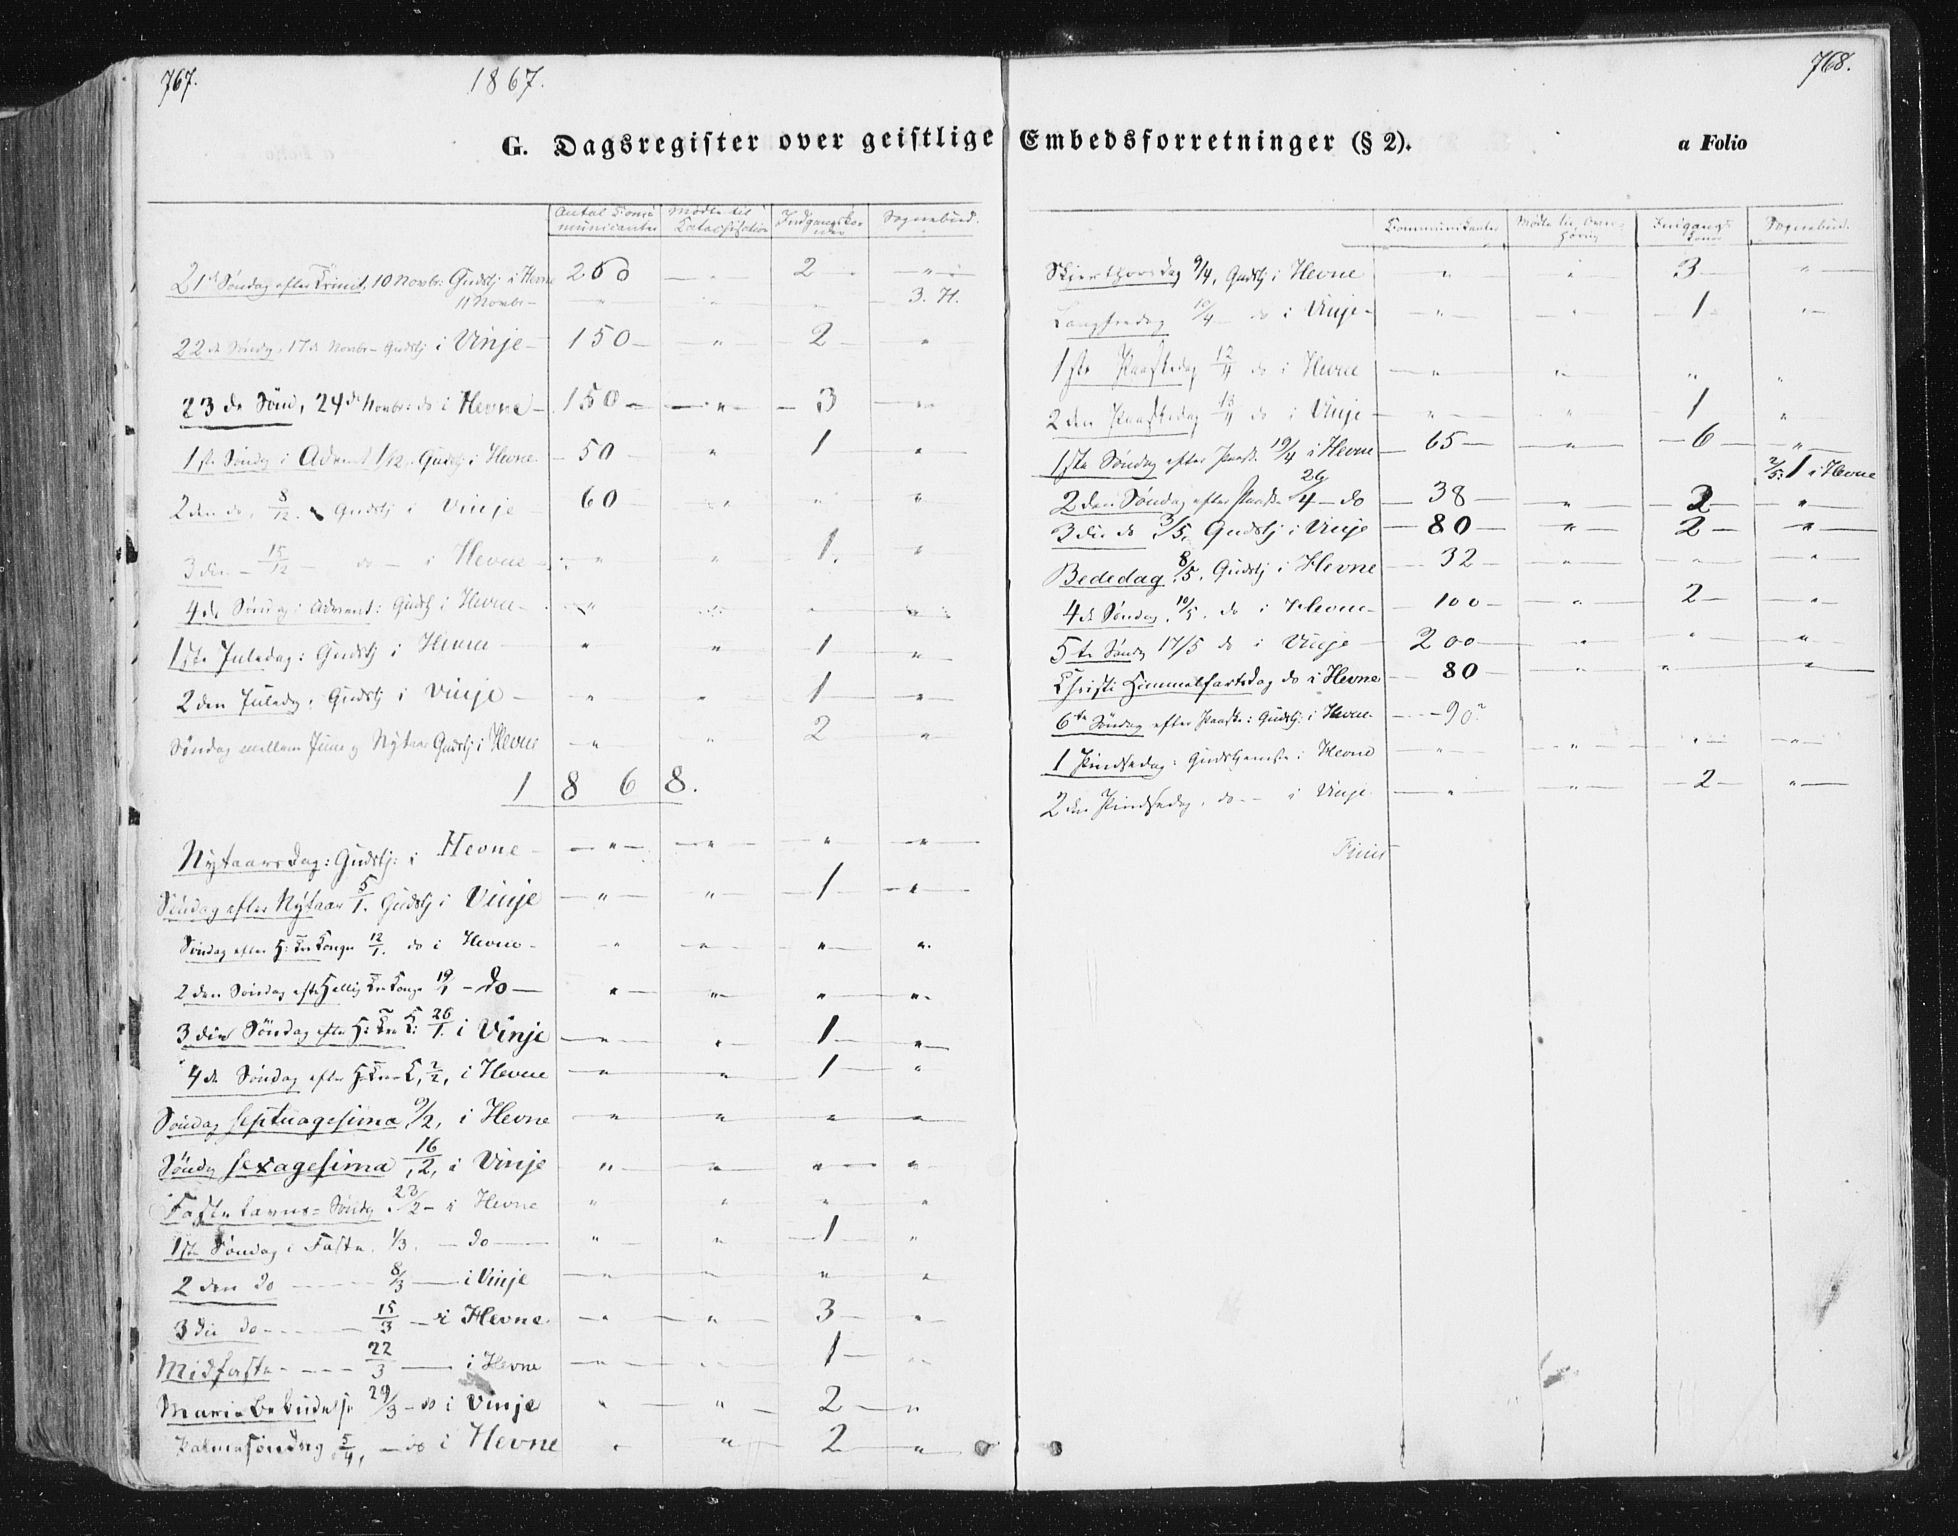 767.
1867.
G. Dagsregister over geistlige
Antal Communicanter Mødte til Catachisation Indgangskoner Sognebud.
21de Søndag efter Trinit. 10 Novbr: Gudstj i Hevne 200 — " — 2 — "
11 Novbr — " " " 3. H.
22de Søndg, 17de Novbr — Gudstj i Vinje — 150 — " — 2 — "
23de Sønd, 24de Novbr: do i Hevne — 150 — " — 3 — "
1ste Søndg i Advent 1/12. Gudstj i Hevne — 50 — " 1 "
2den do, 8/12. Gudstj i Vinje — 60 — " " "
3die — 15/12 — do — i Hevne — " " 1. "
4de Søndag i Advent: Gudstj i Hevne — " " " "
1ste Juledag: Gudstj i Hevne " " 1 "
2den Juledg, Gudstj i Vinje — " " 1 "
Søndag mellem Juul og Nytaar Gudstj i Hevne " " 2 "
1868.
Nytaarsdag: Gudstj: i Hevne — " " " "
Søndag efter Nytaar 5/1. Gudstj i Vinje " " 1 "
Søndag efter H: Tre Konger 12/1. do i Hevne — " " " "
2den Søndag efter Hellig Tre Konge 19/1 — do — " " " "
3die Søndag efter H: Tre K: 26/1. i Vinje " " 1 "
4de Søndag efter H. Tre K, 2/2, i Hevne " " 1 "
Søndag septuagesima 9/2, i Hevne " " " "
Søndg sexagesima 16/2, i Vinje " " " "
Fastelavns-Søndg 23/2 — i Hevne " " " "
1ste Søndag i Faste. 1/3. — do — " " 1 "
2den do — 8/3 — i Vinje " " " "
3die do — 15/3 — i Hevne " " 3 "
Midfaste — 22/3 — i Hevne " " 1 "
Maria Bebudelse 29/3 — do i Vinje " " 2 "
Palmesøndag 5/4, — do i Hevne " " 2 "
768.
Embedsforretninger (§ 2).
a Folio
Communikanter Mødte til Overhøring Indgangskoner Sognebud.
Skjærthorsdag 9/4, Gudstj i Hevne " " 3 "
Langfredag 10/4 — do i Vinje — " " 1 "
1ste Paaskedag 12/4 do i Hevne " " " "
2den Paaskedag 13/4 do i Vinje — " " 1 "
1ste Søndag efter Paask. 19/4 i Hevne — 65 — " — 6 — "
2/5: 1 i Hevne
2den Søndag efter Paaske 26/4 — do — 38 — " — 2 — "
3die do 3/5, Gudstj i Vinje — 80 — " — 2 — "
Bededag 8/5, Gudstj i Hevne — 32 — " " "
4de Søndag, 10/5. do i Hevne — 100 — " 2 — "
5te Søndg 17/5 do i Vinje — 200 — " " "
Christi Himmelfartsdag do i Hevne — 80 — " " "
6te Søndag efter Paaske: Gudstj: i Hevne — 90?
1 Pindsedag: Gudstjeneste i Hevne " " " "
2den Pindsedg, do — i Vinje — " " — 2 — "
Finis